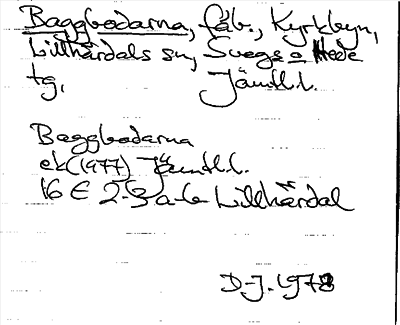 Baggbodarna, fäb., Kyrkbyn,
Lillhärdals sn, Svegs o Hede
tg, Jämtl.l.
Baggbodarna
ek(1977) Jämtl.l.
16 E 2-3 a-b Lillhärdal
D-J. 1978